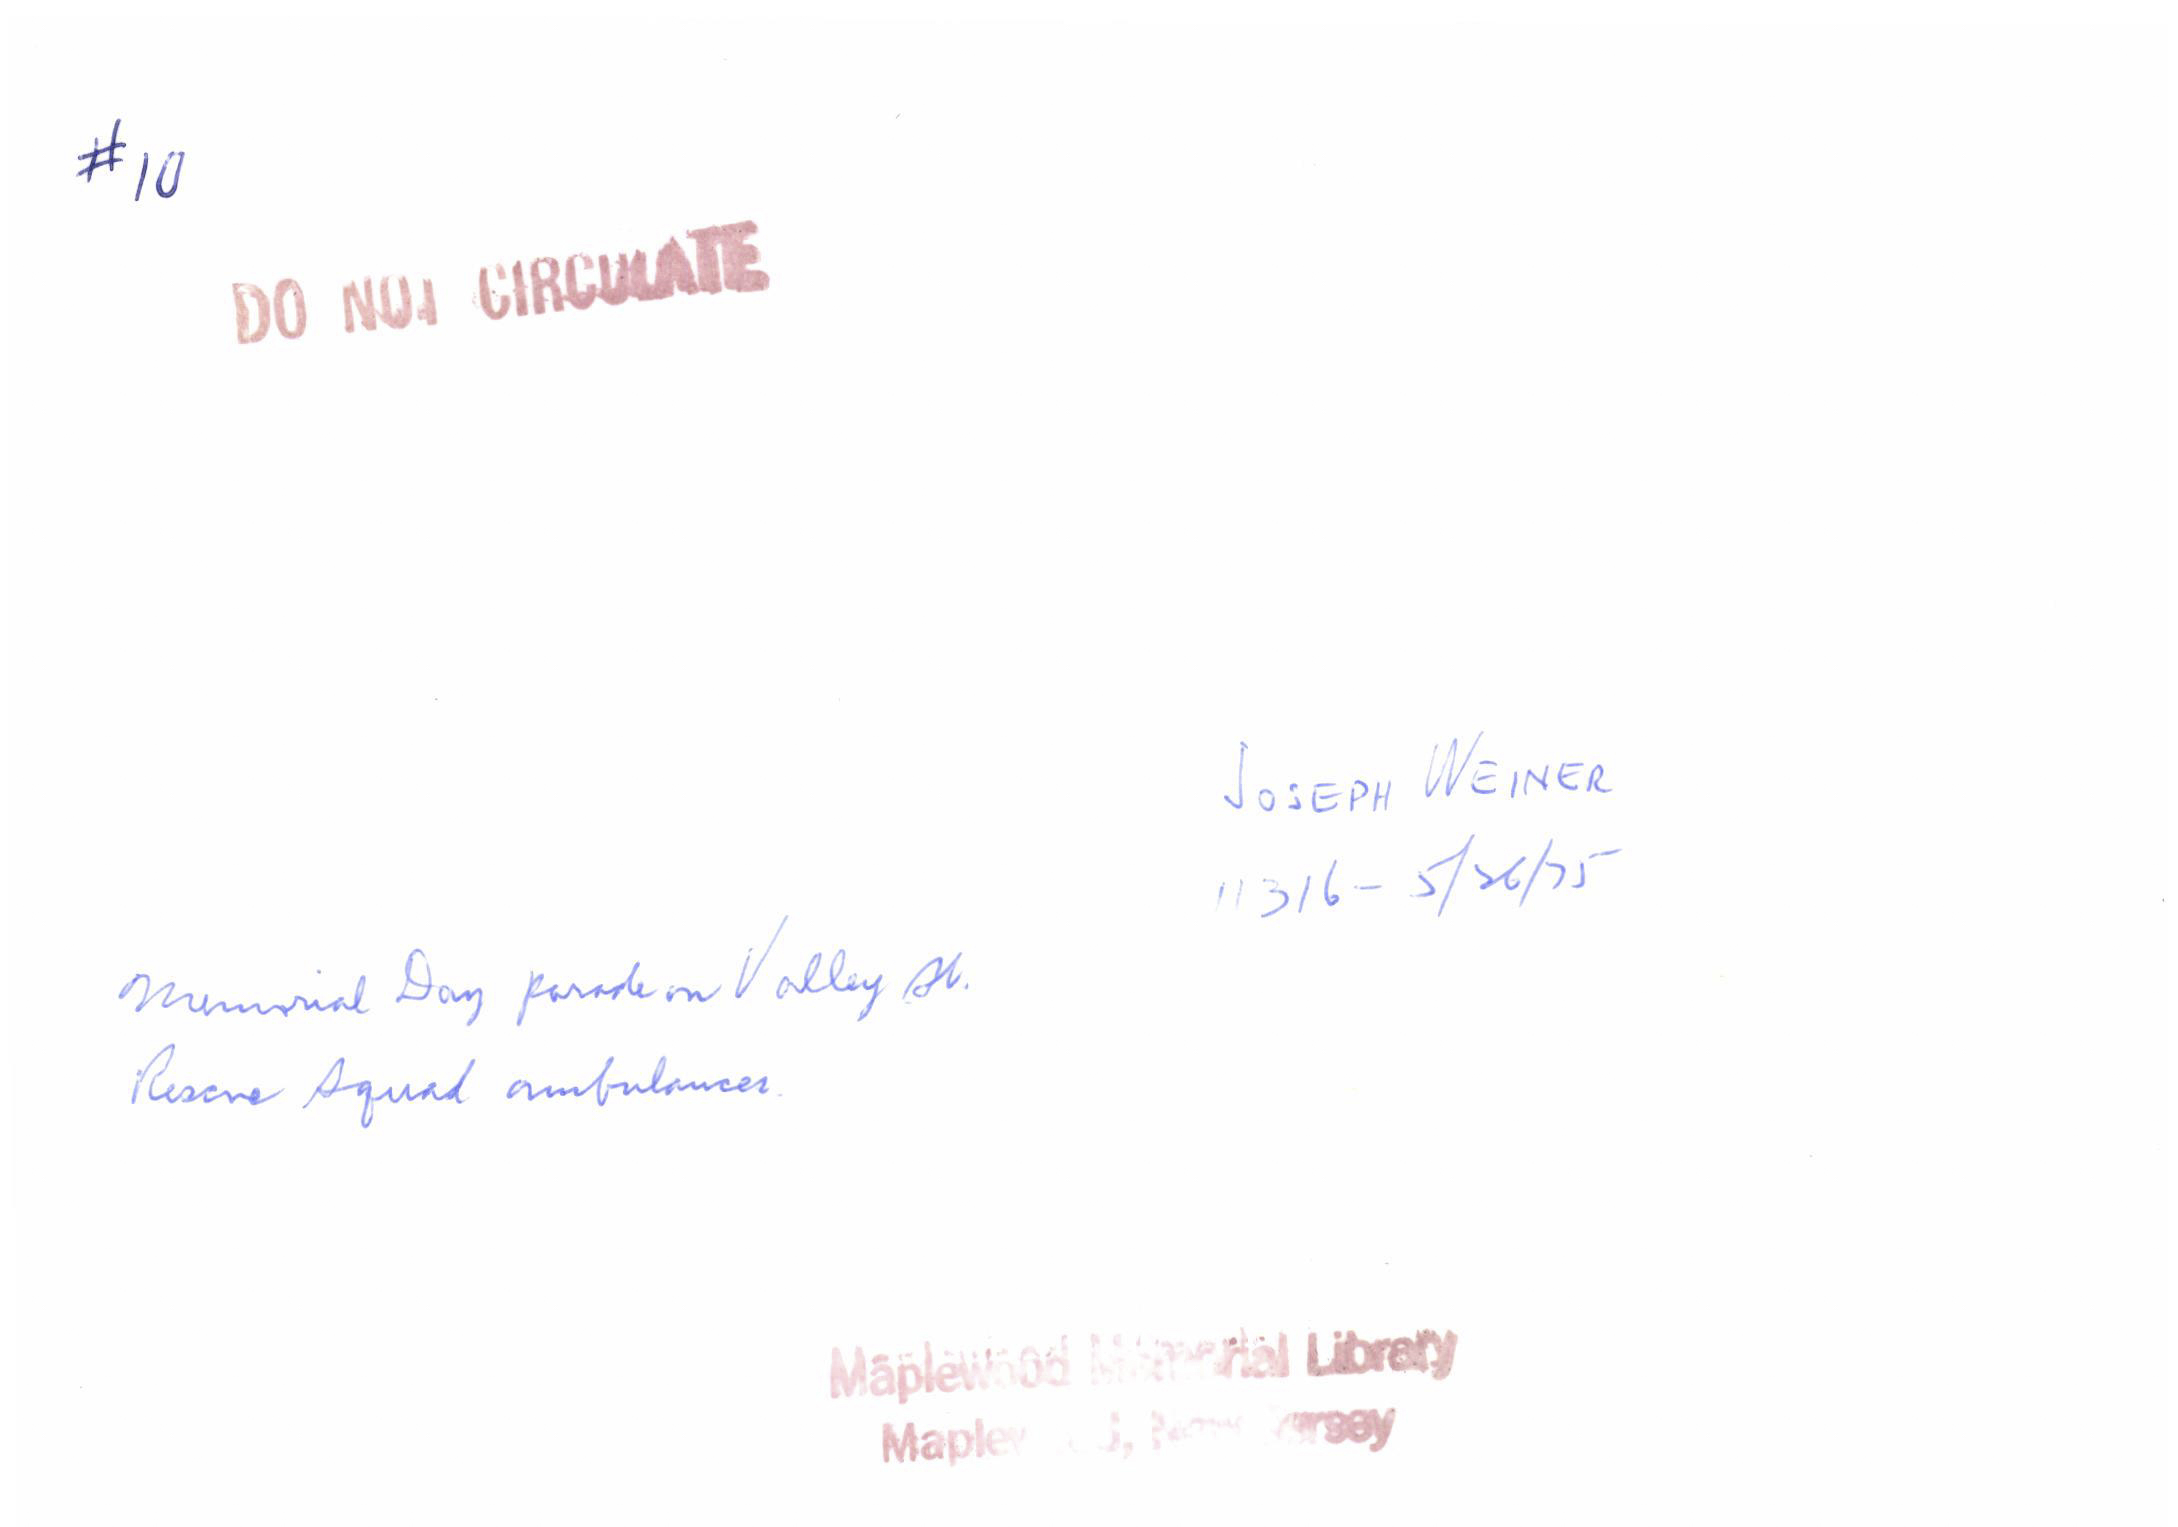 #10
DO NOT CIRCULATE
JOSEPH WEINER
11316 - 5/26/75
Memorial Day parade on Valley St.
Rescue Squad ambulances.
Maplewood Memorial Library
Maplewood, New Jersey